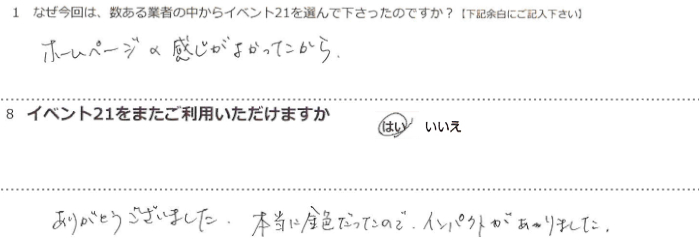 1 なぜ今回は、数ある業者の中からイベント21を選んで下さったのですか？【下記余白にご記入下さい】
ホームページの感じがよかったから.
8 イベント21をまたご利用いただけますか
はい いいえ
ありがとうございました. 本当に金色だったので. インパクトがありました.